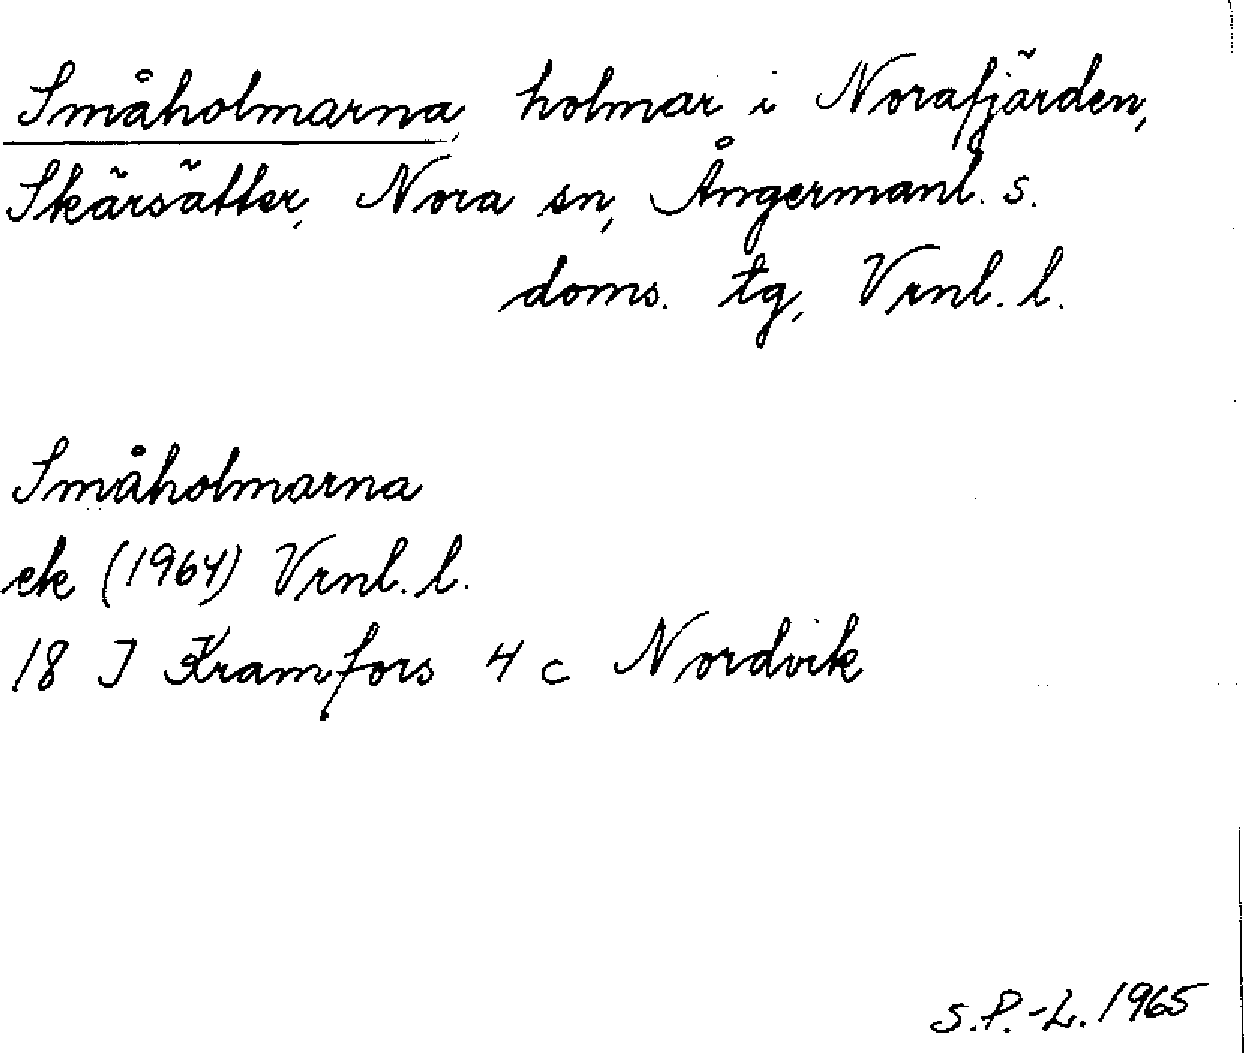 Småholmarna, holmar i Norafjärden,
Skärsätter, Nora sn, Ångermanl. s.
doms. tg, Vrnl. l.
Småholmarna
ek (1964) Vrnl. l.
18 J Kramfors 4 c Nordvik
S.P.-L. 1965